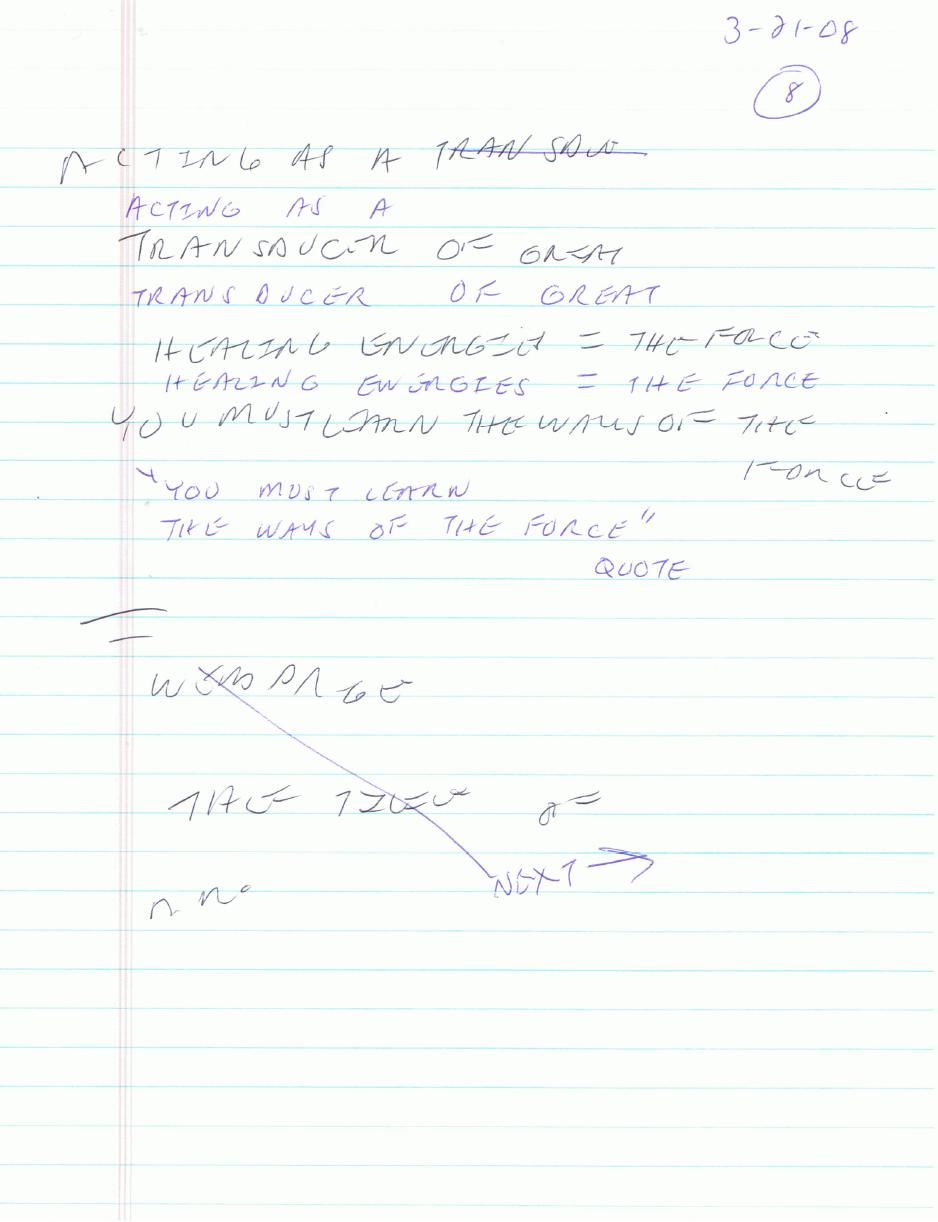 3-21-08
8
ACTING AS A TRANSDU
ACTING AS A
TRANSDUCER OF GREAT
TRANSDUCER OF GREAT
HEALING ENERGIES = THE FORCE
HEALING ENERGIES = THE FORCE
YOU MUST LEARN THE WAYS OF THE
FORCE
"YOU MUST LEARN
THE WAYS OF THE FORCE"
QUOTE
WEB PAGE
NEXT →